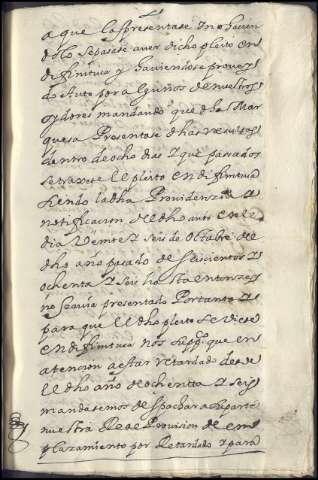 a que las presentase y no hacien
dolo sepasase aver dicho pleito en
difinitiva y haviendose provey
do Auto por algunos de nuestros
oydores mandando que dha Mar
quesa Presentase dhas resultas
dentro de ocho dias y que pasados
se traxese el pleito en difinitiva
siendo la dha Providenzia a
notificacion el dho auto en el
dia Veinte y seis de octubre de
dho año pasado de seiscientos y
ochenta y seis hasta entonzes
no se avia presentado Por tanto y
para que el dho pleito se viese
en difinitiva nos suppco que en
atencion a estar retardado desde
el dho año de ochenta y seis
mandasemos despachar a su parte
nuestra Real Provision de em
plazamiento por Retardado y para